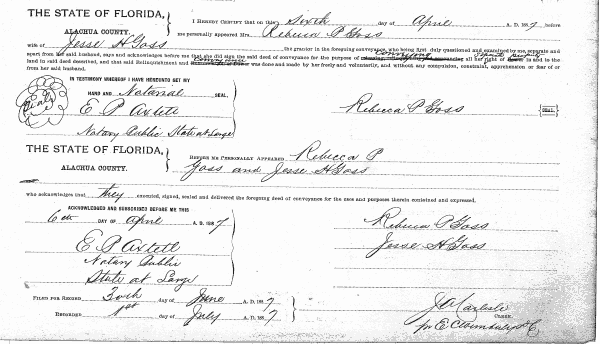 THE STATE OF FLORIDA,
ALACHUA COUNTY.
I HEREBY CERTIFY that on this Sixth day of April A. D. 1887 before
me personally appeared Mrs. Rebecca P Goss
wife of Jesse H Goss the grantor in the foregoing conveyance, who being first duly questioned and examined by me, separate and
apart from her said husband, says and acknowledges before me that she did sign the said deed of conveyance for the purpose of all her right of in and to the
land in said deed described, and that said Relinquishment and was done and made by her freely and voluntarily, and without any compulsion, constraint, apprehension or fear of or
from her said husband.
IN TESTIMONY WHEREOF I HAVE HEREUNTO SET MY
HAND AND Notarial SEAL,
Seal
E P Axtell
Notary Public State at Large
Rebecca P Goss
SEAL.
THE STATE OF FLORIDA,
ALACHUA COUNTY.
BEFORE ME PERSONALLY APPEARED Rebecca P
Goss and Jesse H Goss
who acknowledges that they executed, signed, sealed and delivered the foregoing deed of conveyance for the uses and purposes therein contained and expressed.
ACKNOWLEDGED AND SUBSCRIBED BEFORE ME THIS
6th DAY OF April A. D. 1887
E P Axtell
Notary Public
State at Large
Rebecca P Goss
Jesse H Goss
FILED FOR RECORD 30th day of June A. D. 1887
RECORDED 1st day of July A. D. 1887
J A Carlisle
CLERK.